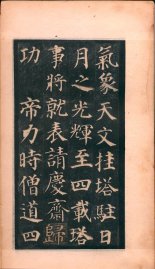 氣象天文挂塔駐日
月之光輝至四載塔
事將就表請慶齋歸
功 帝力時僧道四